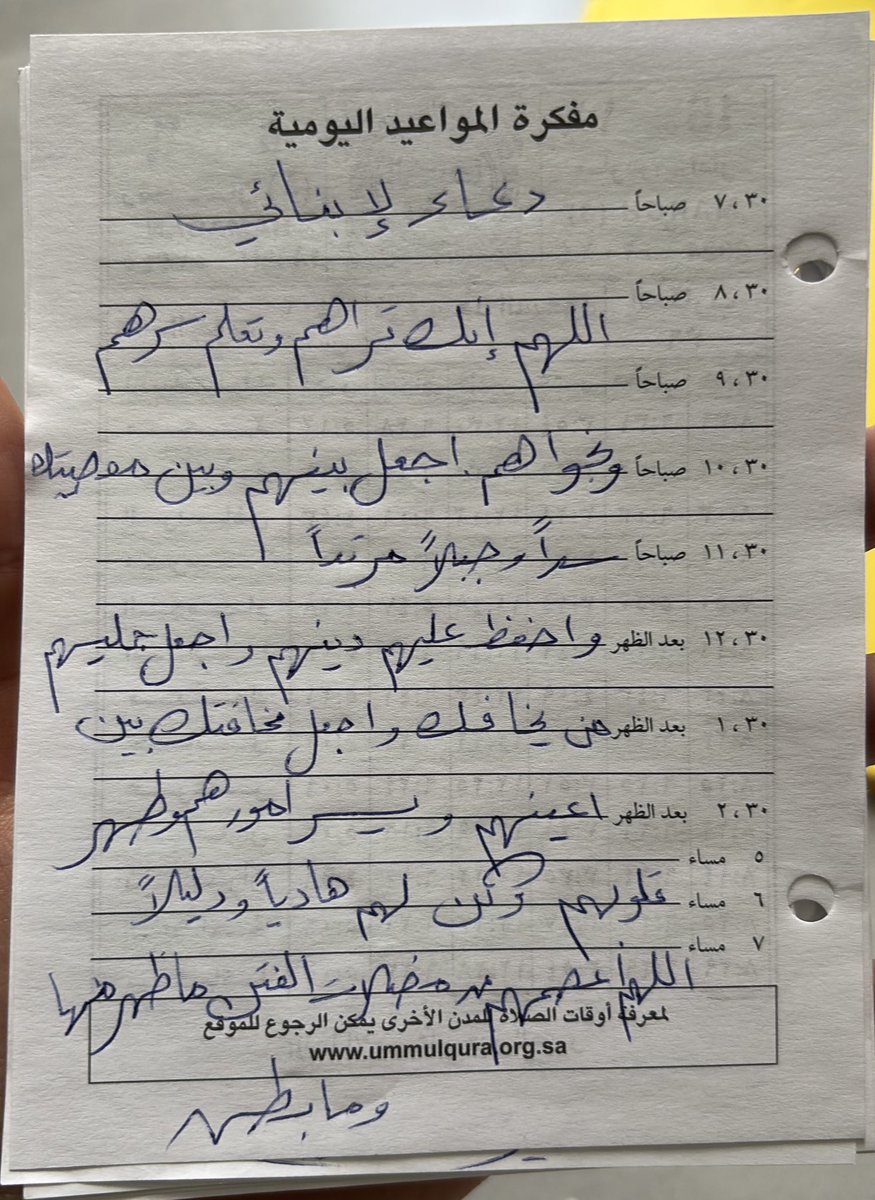 مفكرة المواعيد اليومية
٧،٣٠ صباحاً دعاء لإبنائي
٨،٣٠ صباحاً
اللهم إنك تراهم وتعلم سرهم
٩،٣٠ صباحاً
١٠،٣٠ صباحاً ونجواهم اجعل بينهم وبين معصيتك
١١،٣٠ صباحاً سداً وجبلاً مرتداً
١٢،٣٠ بعد الظهر واحفظ عليهم دينهم واجعل جليسهم
١،٣٠ بعد الظهر من يخافك واجعل مخافتك بين
٢،٣٠ بعد الظهر اعينهم ويسر امورهم وطهر
٥ مساء
٦ مساء قلوبهم وكن لهم هادياً ودليلاً
٧ مساء
اللهم أعصمهم من مضلات الفتن ماظهر منها
لمعرفة أوقات الصلاة للمدن الأخرى يمكن الرجوع للموقع
www.ummulqura.org.sa
ومابطن